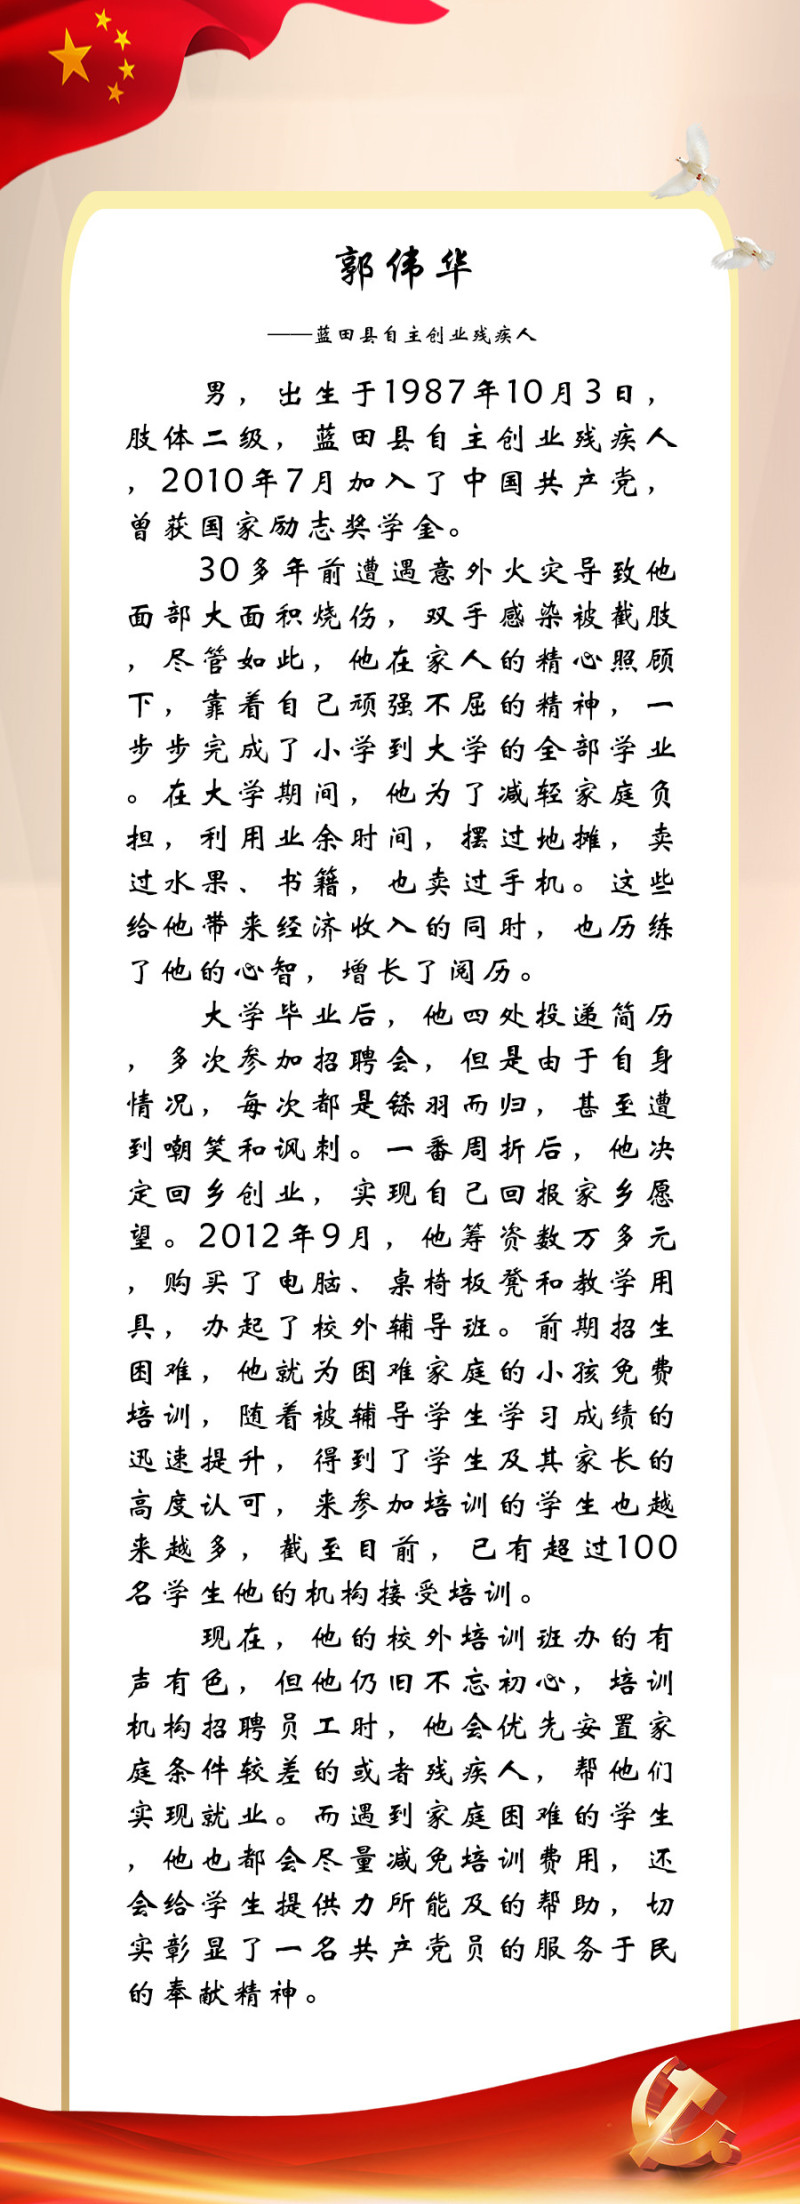 郭伟华
——蓝田县自主创业残疾人
男，出生于1987年10月3日，
肢体二级，蓝田县自主创业残疾人
，2010年7月加入了中国共产党，
曾获国家励志奖学金。
30多年前遭遇意外火灾导致他
面部大面积烧伤，双手感染被截肢
，尽管如此，他在家人的精心照顾
下，靠着自己顽强不屈的精神，一
步步完成了小学到大学的全部学业
。在大学期间，他为了减轻家庭负
担，利用业余时间，摆过地摊，卖
过水果、书籍，也卖过手机。这些
给他带来经济收入的同时，也历练
了他的心智，增长了阅历。
大学毕业后，他四处投递简历
，多次参加招聘会，但是由于自身
情况，每次都是铩羽而归，甚至遭
到嘲笑和讽刺。一番周折后，他决
定回乡创业，实现自己回报家乡愿
望。2012年9月，他筹资数万多元
，购买了电脑、桌椅板凳和教学用
具，办起了校外辅导班。前期招生
困难，他就为困难家庭的小孩免费
培训，随着被辅导学生学习成绩的
迅速提升，得到了学生及其家长的
高度认可，来参加培训的学生也越
来越多，截至目前，已有超过100
名学生他的机构接受培训。
现在，他的校外培训班办的有
声有色，但他仍旧不忘初心，培训
机构招聘员工时，他会优先安置家
庭条件较差的或者残疾人，帮他们
实现就业。而遇到家庭困难的学生
，他也都会尽量减免培训费用，还
会给学生提供力所能及的帮助，切
实彰显了一名共产党员的服务于民
的奉献精神。